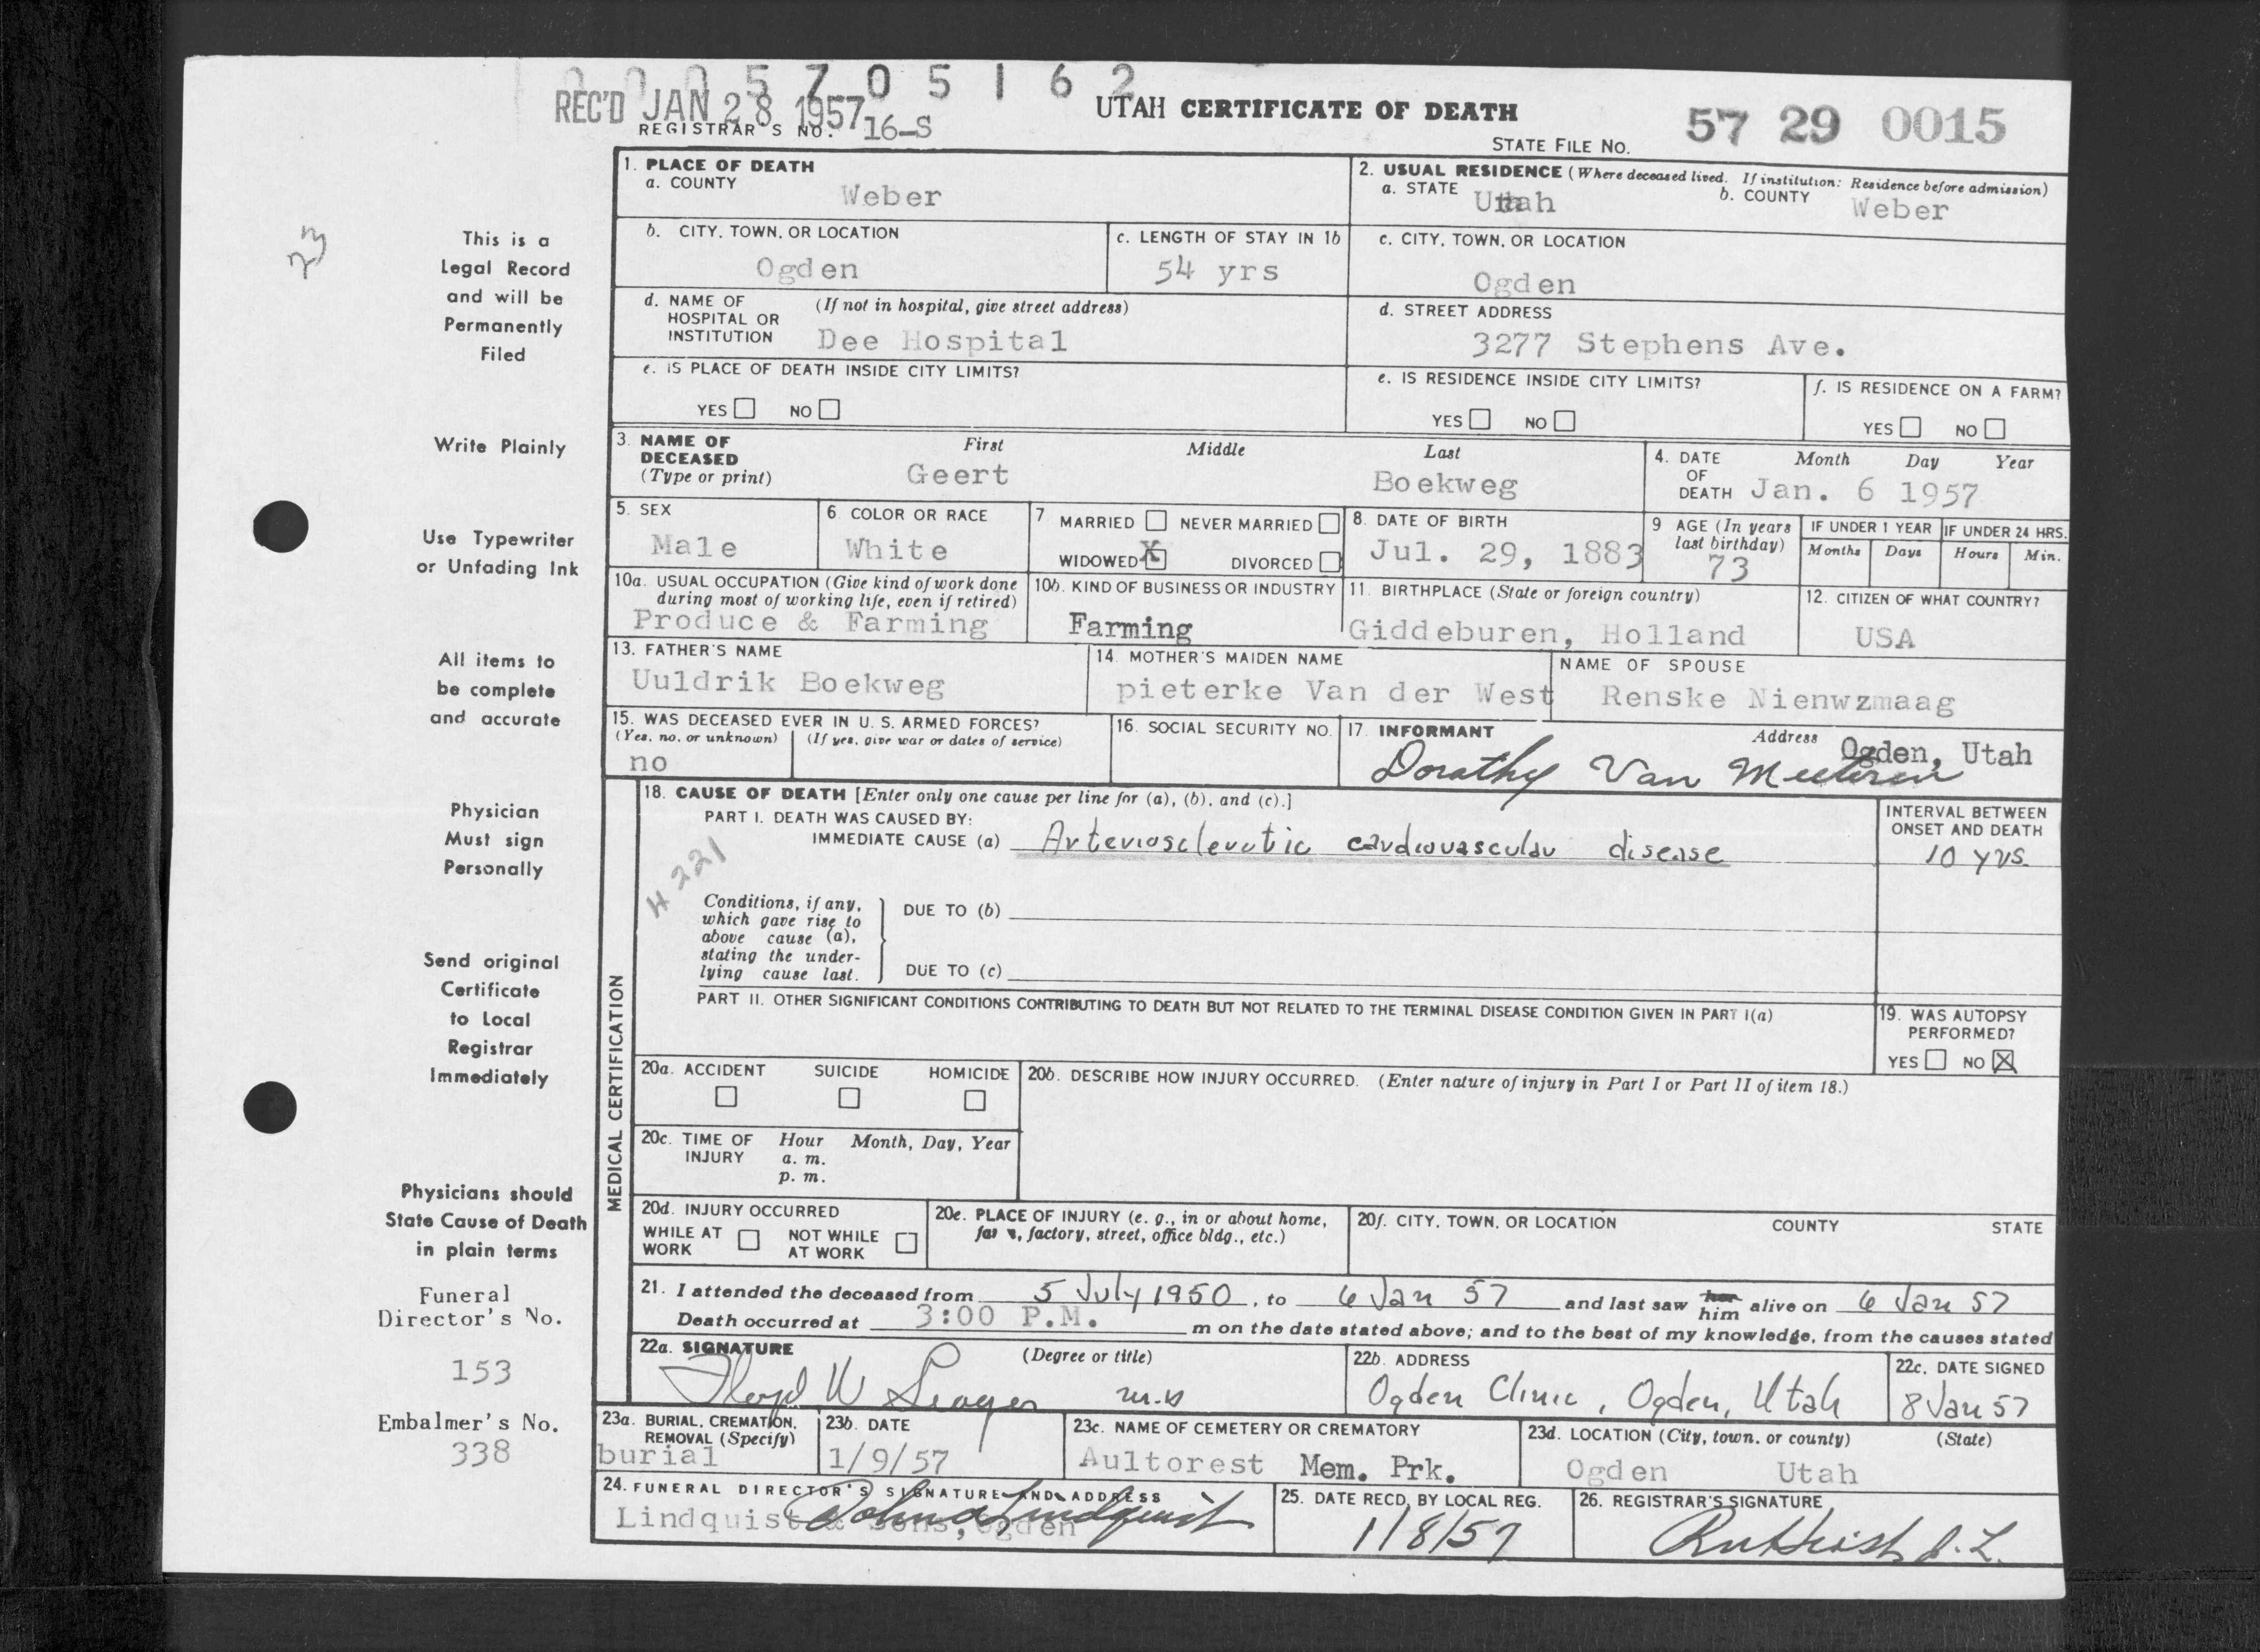 0 0 0 5 7 0 5 1 6 2
REC'D JAN 28 1957
REGISTRAR'S NO. 16-S
UTAH CERTIFICATE OF DEATH
STATE FILE NO. 57 29 0015
23
This is a
Legal Record
and will be
Permanently
Filed
Write Plainly
Use Typewriter
or Unfading Ink
All items to
be complete
and accurate
Physician
Must sign
Personally
Send original
Certificate
to Local
Registrar
Immediately
Physicians should
State Cause of Death
in plain terms
Funeral
Director's No.
153
Embalmer's No.
338
1. PLACE OF DEATH
a. COUNTY Weber
2. USUAL RESIDENCE (Where deceased lived. If institution: Residence before admission)
a. STATE Utah b. COUNTY Weber
b. CITY, TOWN, OR LOCATION Ogden
c. LENGTH OF STAY IN 1b 54 yrs
c. CITY, TOWN, OR LOCATION Ogden
d. NAME OF HOSPITAL OR INSTITUTION (If not in hospital, give street address) Dee Hospital
d. STREET ADDRESS 3277 Stephens Ave.
e. IS PLACE OF DEATH INSIDE CITY LIMITS?
YES NO
e. IS RESIDENCE INSIDE CITY LIMITS?
YES NO
f. IS RESIDENCE ON A FARM?
YES NO
3. NAME OF DECEASED (Type or print) First Middle Last
Geert Boekweg
4. DATE OF DEATH Month Day Year
Jan. 6 1957
5. SEX Male
6. COLOR OR RACE White
7 MARRIED NEVER MARRIED
WIDOWED X DIVORCED
8. DATE OF BIRTH Jul. 29, 1883
9 AGE (In years last birthday) 73
IF UNDER 1 YEAR Months Days
IF UNDER 24 HRS. Hours Min.
10a. USUAL OCCUPATION (Give kind of work done during most of working life, even if retired)
Produce & Farming
10b. KIND OF BUSINESS OR INDUSTRY
Farming
11. BIRTHPLACE (State or foreign country)
Giddeburen, Holland
12. CITIZEN OF WHAT COUNTRY?
USA
13. FATHER'S NAME
Uuldrik Boekweg
14. MOTHER'S MAIDEN NAME
pieterke Van der West
NAME OF SPOUSE
Renske Nienwzmaag
15. WAS DECEASED EVER IN U. S. ARMED FORCES?
(Yes, no, or unknown) (If yes, give war or dates of service)
no
16. SOCIAL SECURITY NO.
17. INFORMANT Address Ogden, Utah
Dorathy Van Meeteren
MEDICAL CERTIFICATION
18. CAUSE OF DEATH [Enter only one cause per line for (a), (b), and (c).]
PART I. DEATH WAS CAUSED BY:
IMMEDIATE CAUSE (a) Arteriosclerotic cardiovascular disease
INTERVAL BETWEEN ONSET AND DEATH
10 yrs.
4221
Conditions, if any, which gave rise to above cause (a), stating the underlying cause last.
DUE TO (b)
DUE TO (c)
PART II. OTHER SIGNIFICANT CONDITIONS CONTRIBUTING TO DEATH BUT NOT RELATED TO THE TERMINAL DISEASE CONDITION GIVEN IN PART I(a)
19. WAS AUTOPSY PERFORMED?
YES NO X
20a. ACCIDENT SUICIDE HOMICIDE
20b. DESCRIBE HOW INJURY OCCURRED. (Enter nature of injury in Part I or Part II of item 18.)
20c. TIME OF INJURY Hour Month, Day, Year
a. m.
p. m.
20d. INJURY OCCURRED
WHILE AT WORK NOT WHILE AT WORK
20e. PLACE OF INJURY (e. g., in or about home, farm, factory, street, office bldg., etc.)
20f. CITY, TOWN, OR LOCATION COUNTY STATE
21. I attended the deceased from 5 July 1950, to 6 Jan 57 and last saw her him alive on 6 Jan 57
Death occurred at 3:00 P.M. m on the date stated above; and to the best of my knowledge, from the causes stated
22a. SIGNATURE (Degree or title)
Floyd W Seager M.D
22b. ADDRESS
Ogden Clinic, Ogden, Utah
22c. DATE SIGNED
8 Jan 57
23a. BURIAL, CREMATION, REMOVAL (Specify)
burial
23b. DATE
1/9/57
23c. NAME OF CEMETERY OR CREMATORY
Aultorest Mem. Prk.
23d. LOCATION (City, town, or county) (State)
Ogden Utah
24. FUNERAL DIRECTOR'S SIGNATURE AND ADDRESS
Lindquist & Sons, Ogden
John A Lindquist
25. DATE RECD. BY LOCAL REG.
1/8/57
26. REGISTRAR'S SIGNATURE